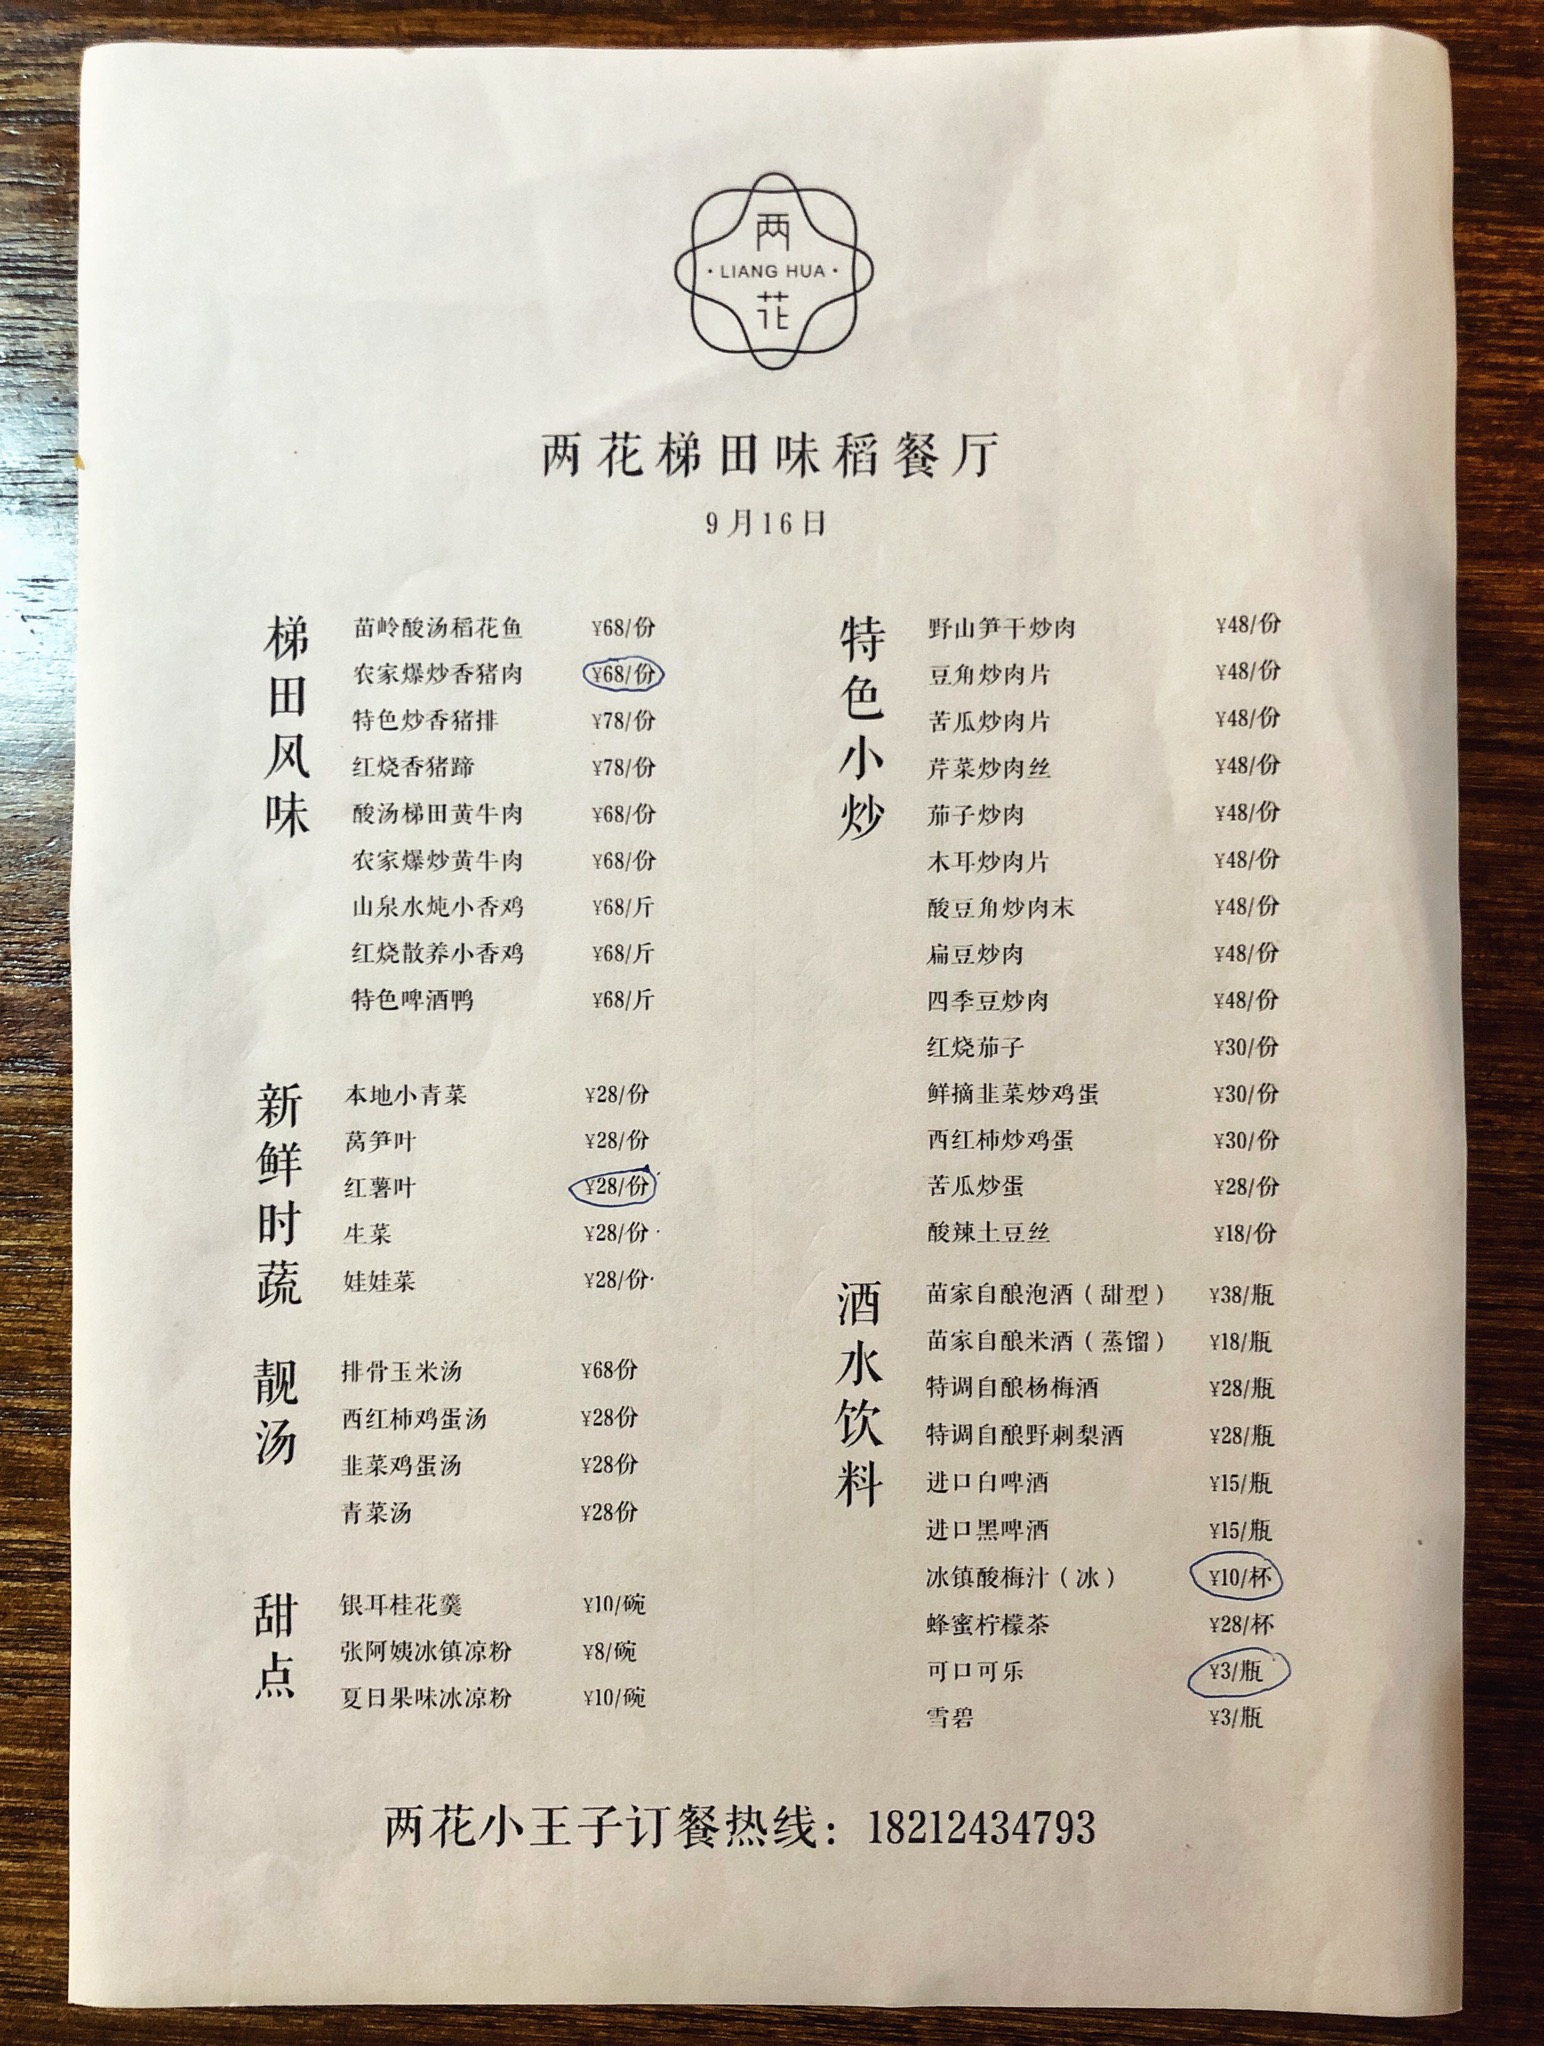 两
·LIANG HUA·
花
两花梯田味稻餐厅
9月16日
梯田风味
苗岭酸汤稻花鱼 ¥68/份
农家爆炒香猪肉 ¥68/份
特色炒香猪排 ¥78/份
红烧香猪蹄 ¥78/份
酸汤梯田黄牛肉 ¥68/份
农家爆炒黄牛肉 ¥68/份
山泉水炖小香鸡 ¥68/斤
红烧散养小香鸡 ¥68/斤
特色啤酒鸭 ¥68/斤
新鲜时蔬
本地小青菜 ¥28/份
莴笋叶 ¥28/份
红薯叶 ¥28/份
生菜 ¥28/份
娃娃菜 ¥28/份
靓汤
排骨玉米汤 ¥68份
西红柿鸡蛋汤 ¥28份
韭菜鸡蛋汤 ¥28份
青菜汤 ¥28份
甜点
银耳桂花羹 ¥10/碗
张阿姨冰镇凉粉 ¥8/碗
夏日果味冰凉粉 ¥10/碗
特色小炒
野山笋干炒肉 ¥48/份
豆角炒肉片 ¥48/份
苦瓜炒肉片 ¥48/份
芹菜炒肉丝 ¥48/份
茄子炒肉 ¥48/份
木耳炒肉片 ¥48/份
酸豆角炒肉末 ¥48/份
扁豆炒肉 ¥48/份
四季豆炒肉 ¥48/份
红烧茄子 ¥30/份
鲜摘韭菜炒鸡蛋 ¥30/份
西红柿炒鸡蛋 ¥30/份
苦瓜炒蛋 ¥28/份
酸辣土豆丝 ¥18/份
酒水饮料
苗家自酿泡酒（甜型） ¥38/瓶
苗家自酿米酒（蒸馏） ¥18/瓶
特调自酿杨梅酒 ¥28/瓶
特调自酿野刺梨酒 ¥28/瓶
进口白啤酒 ¥15/瓶
进口黑啤酒 ¥15/瓶
冰镇酸梅汁（冰） ¥10/杯
蜂蜜柠檬茶 ¥28/杯
可口可乐 ¥3/瓶
雪碧 ¥3/瓶
两花小王子订餐热线：18212434793